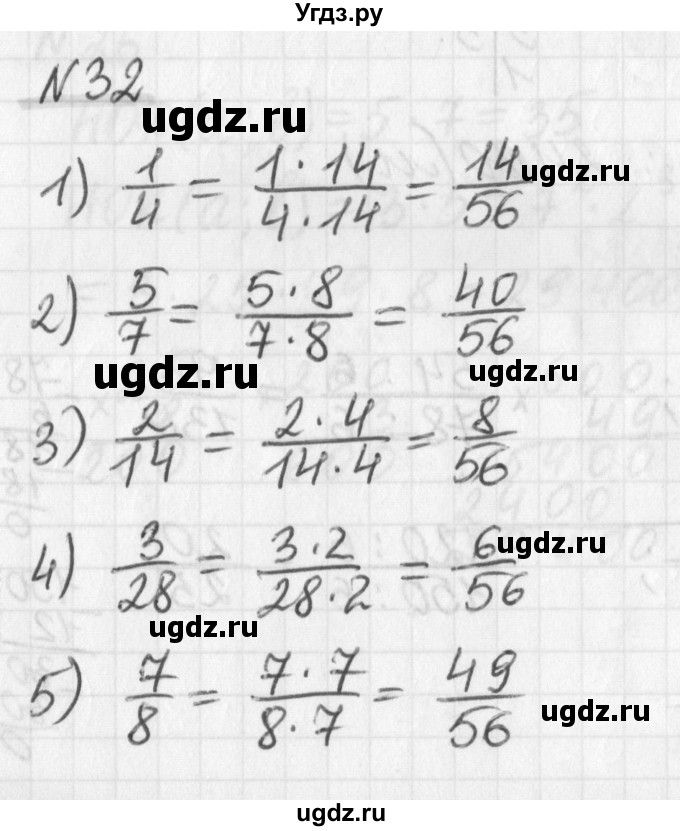 Угдз.ру
N 32
ugdz.ru
1) 1/4 = 1·14/4·14 = 14/56 ugdz.ru
2) 5/7 = 5·8/7·8 = 40/56
ugdz.ru ugdz.ru
3) 2/14 = 2·4/14·4 = 8/56
4) 3/28 = 3·2/28·2 = 6/56 ugdz.ru
ugdz.ru
5) 7/8 = 7·7/8·7 = 49/56 ugdz.ru
ugdz.ru